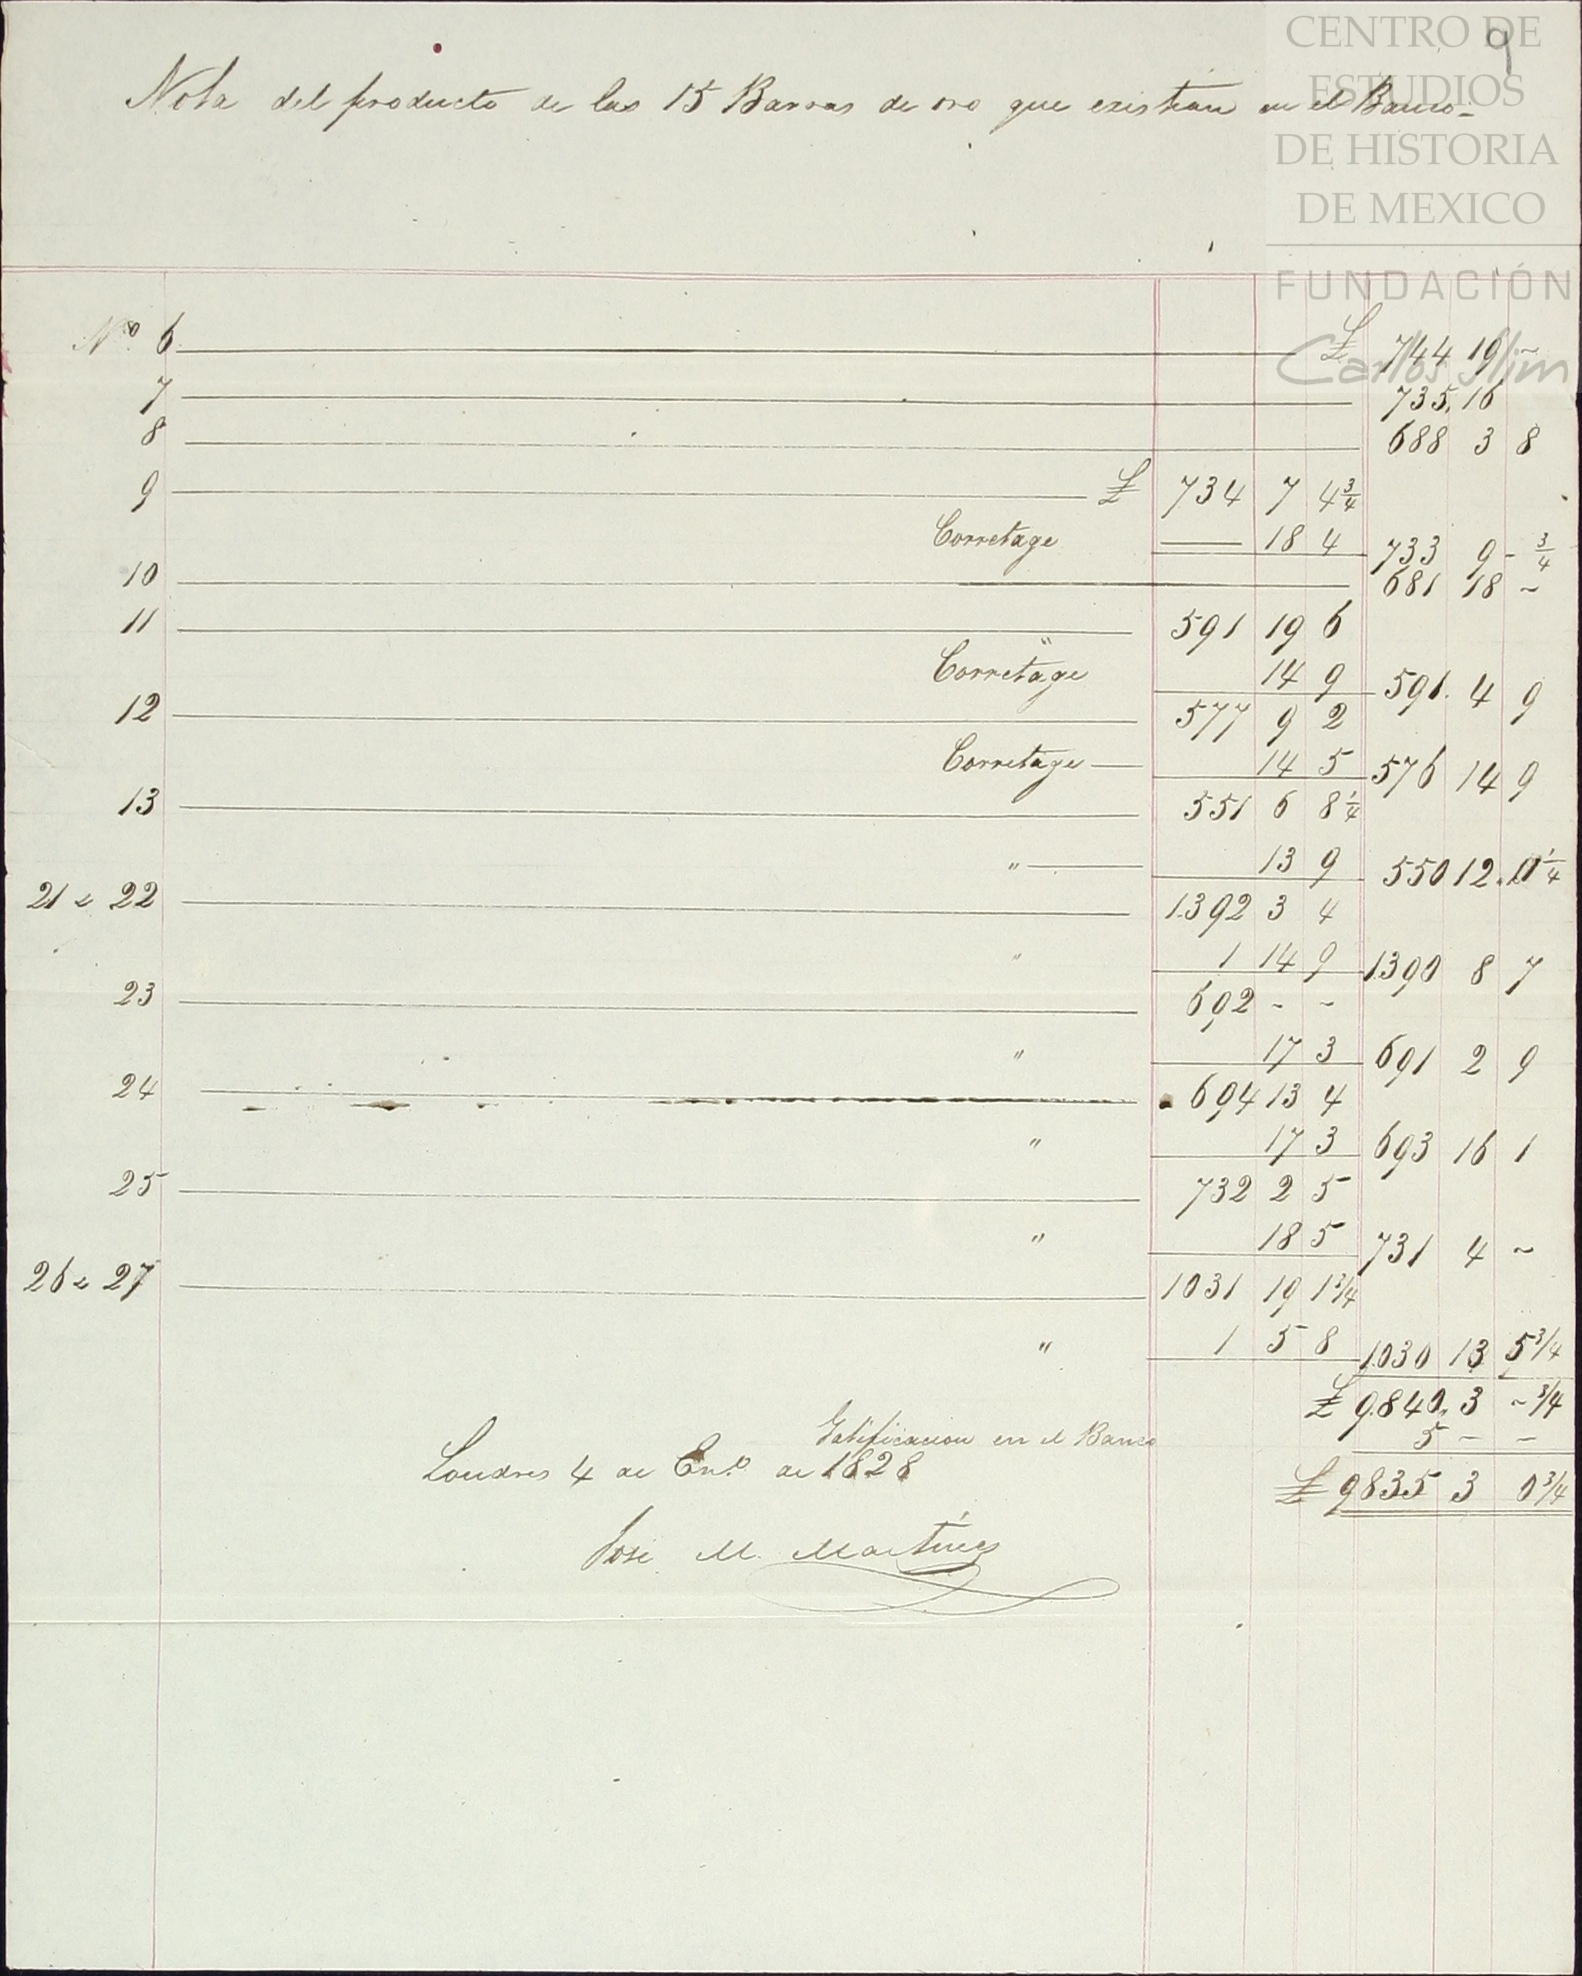 9
CENTRO DE
ESTUDIOS
DE HISTORIA
DE MEXICO
FUNDACIÓN
Carlos Slim
Nota del producto de las 15 Barras de oro que existian en el Banco.
Nº 6 £ 744 19 ~
7 735. 16
8 688 3 8
9 £ 734 7 4 3/4
Corretage — 18 4 733 9 - 3/4
10 681 18 ~
11 591 19 6
Corretage 14 9 591. 4 9
12 577 9 2
Corretage — 14 5 576 14 9
13 551 6 8 1/4
" — 13 9 550 12. 11 1/4
21 e 22 1392 3 4
" 1 14 9 1390 8 7
23 692 - ~
" 17 3 691 2 9
24 694 13 4
" 17 3 693 16 1
25 732 2 5
" 18 5 731 4 ~
26 e 27 1031 19 1 3/4
" 1 5 8 1030 13 5 3/4
£ 9.840. 3 ~ 3/4
Gatificacion en el Banco 5 - -
Londres 4 de En.º de 1828
£ 9835 3 0 3/4
José M. Martinez